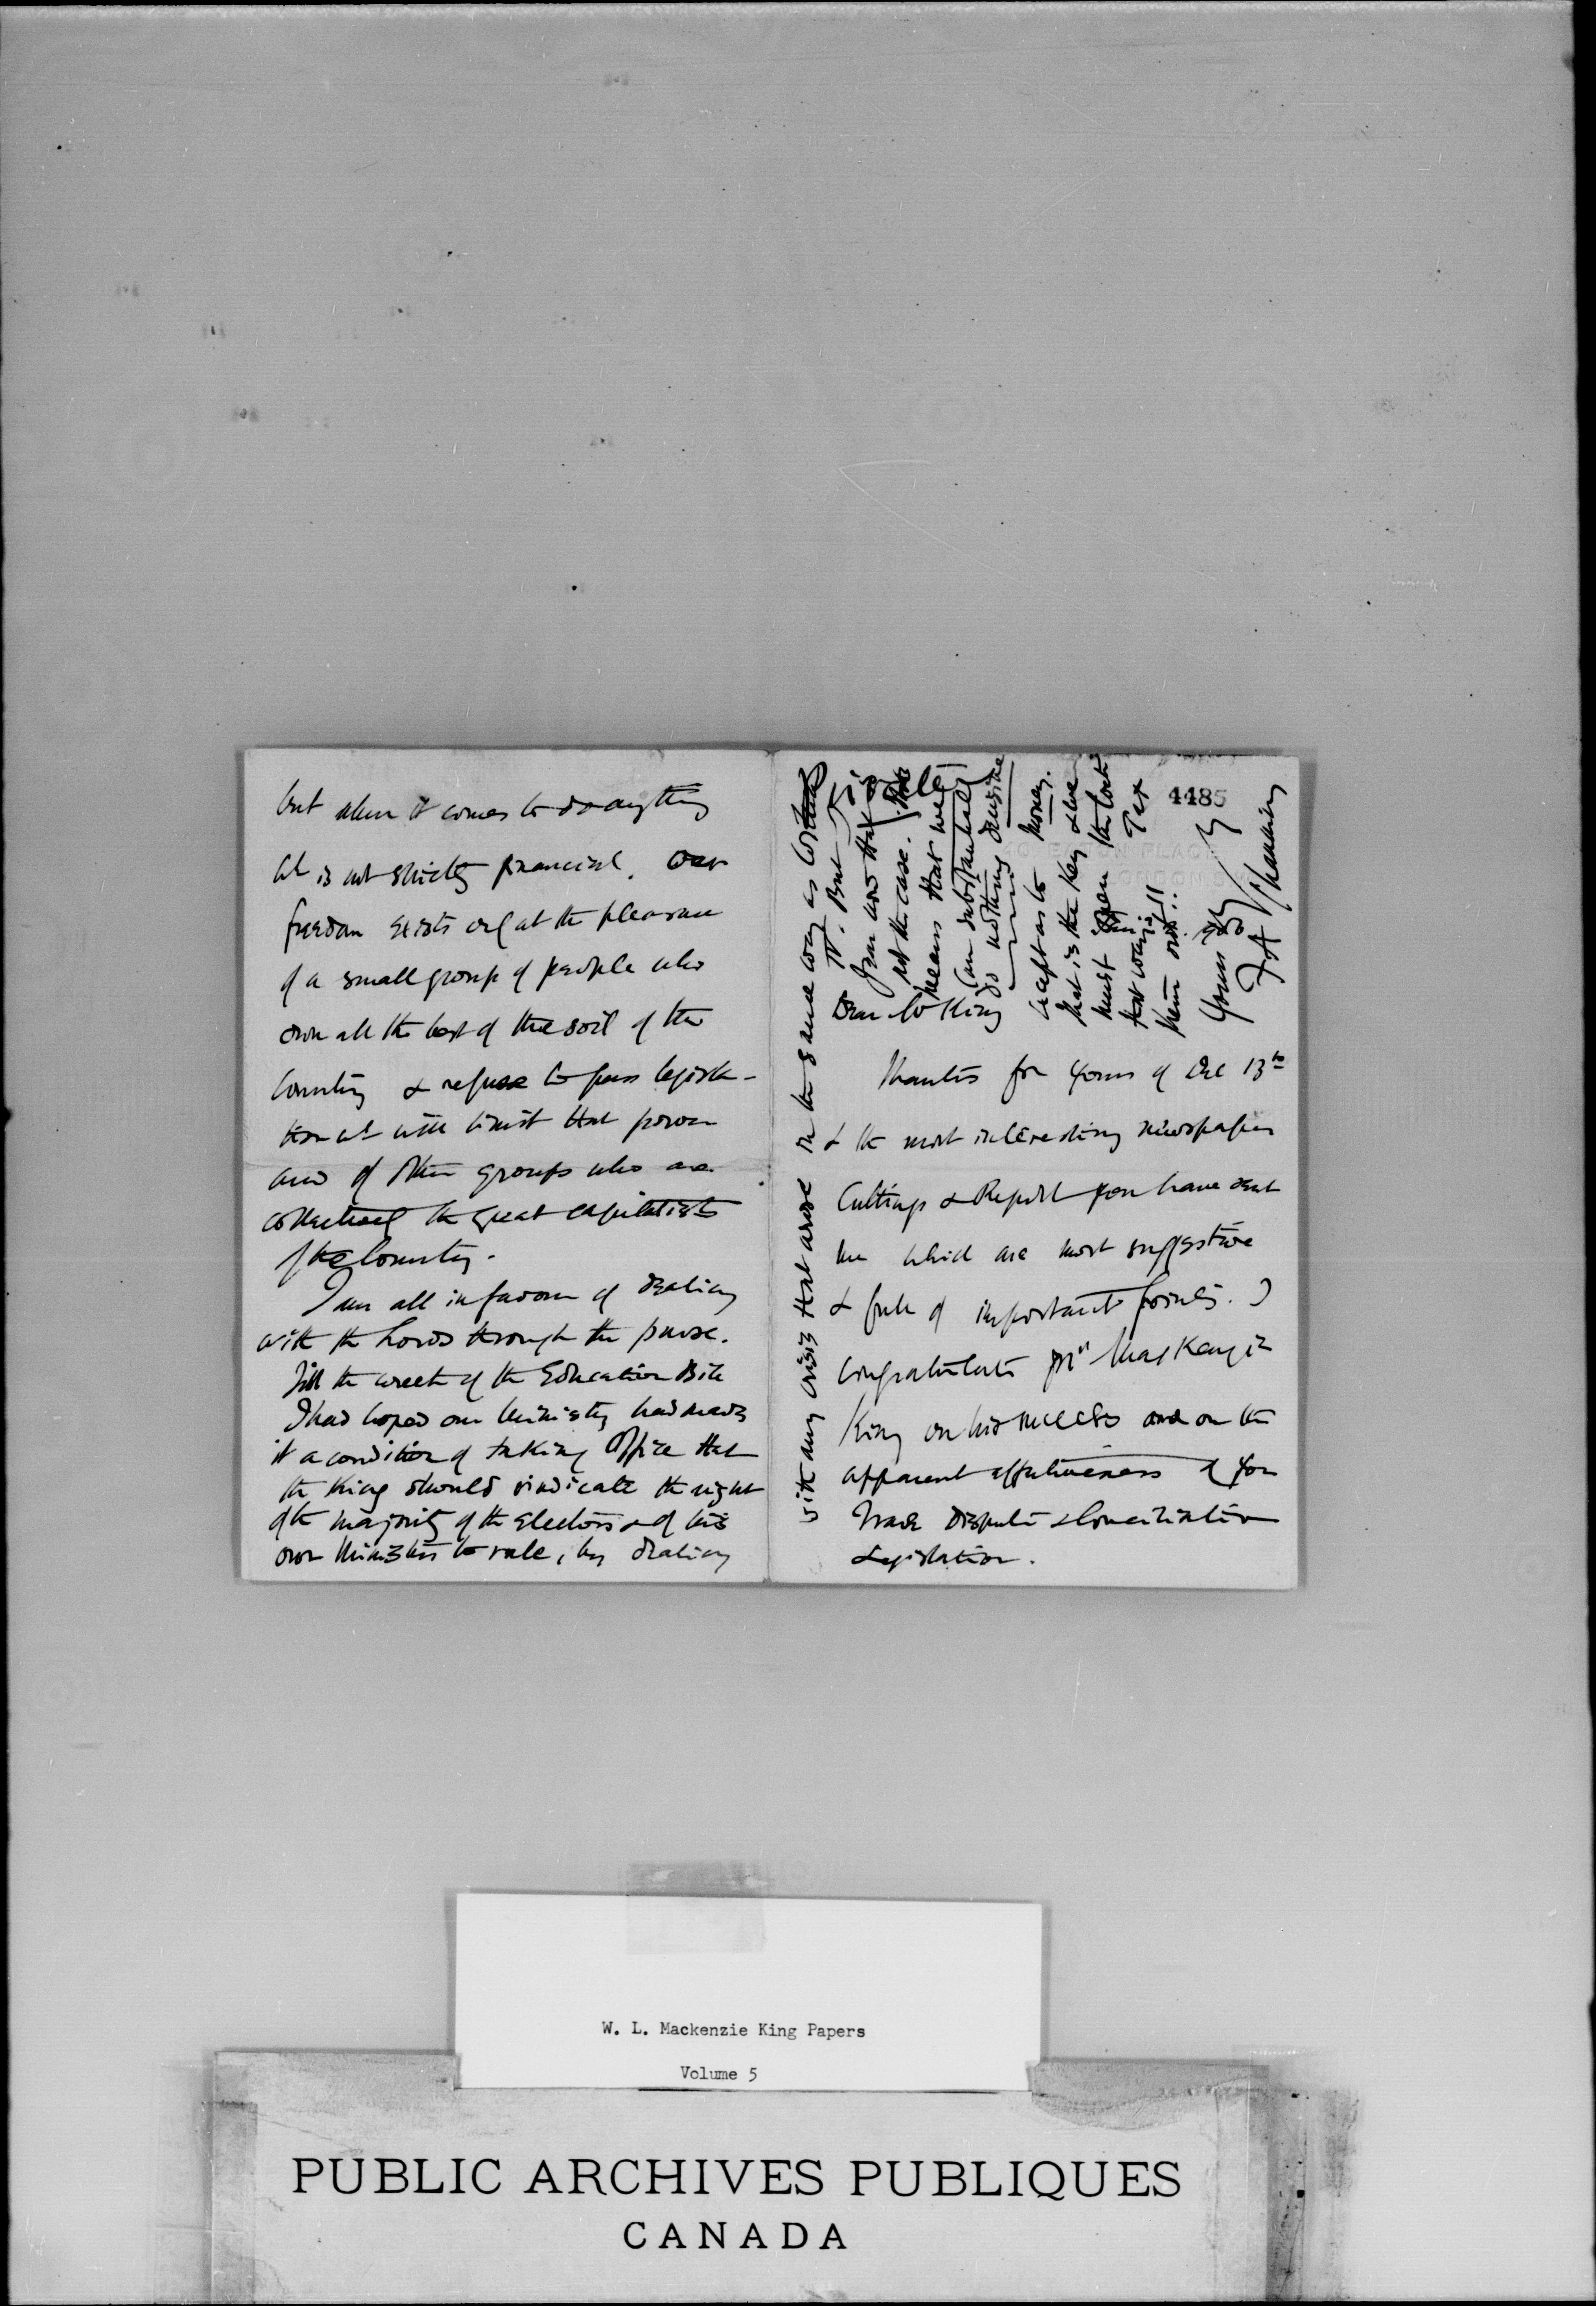 but when it comes to do anything
wh is not strictly financial. Our
freedom exists only at the pleasure
of a small group of people who
own all the best of the soil of the
Country & refuse to pass legisla-
tion wh will limit that power
and of other groups who are
collectively the great capitalists
of the Country.
I am all in favour of dealing
with the Lords through the purse.
Till the wreck of the Education Bill
I had hoped our Ministry had made
it a condition of taking Office that
the King should vindicate the right
of the majority of the Electors & of his
own Ministers to rule, by dealing
with any crisis that arose in the same way as William
IV. But
I am now that
not the case. This
means that we
can substantially
do nothing decisive
except as to money.
that is the key & we
must open the lock
that way
Tax
them out!!
Yours
F A Channing
4485
ON PLACE
Dear Mr King
Thanks for yours of Dec 13th
& the most interesting newspaper
Cuttings & Report you have sent
me which are most suggestive
& full of important points. I
congratulate Mr MacKenzie
King on his success and on the
apparent effectiveness of your
Trade Dispute & Conciliation
Legislation.
W. L. Mackenzie King Papers
Volume 5
PUBLIC ARCHIVES PUBLIQUES
CANADA